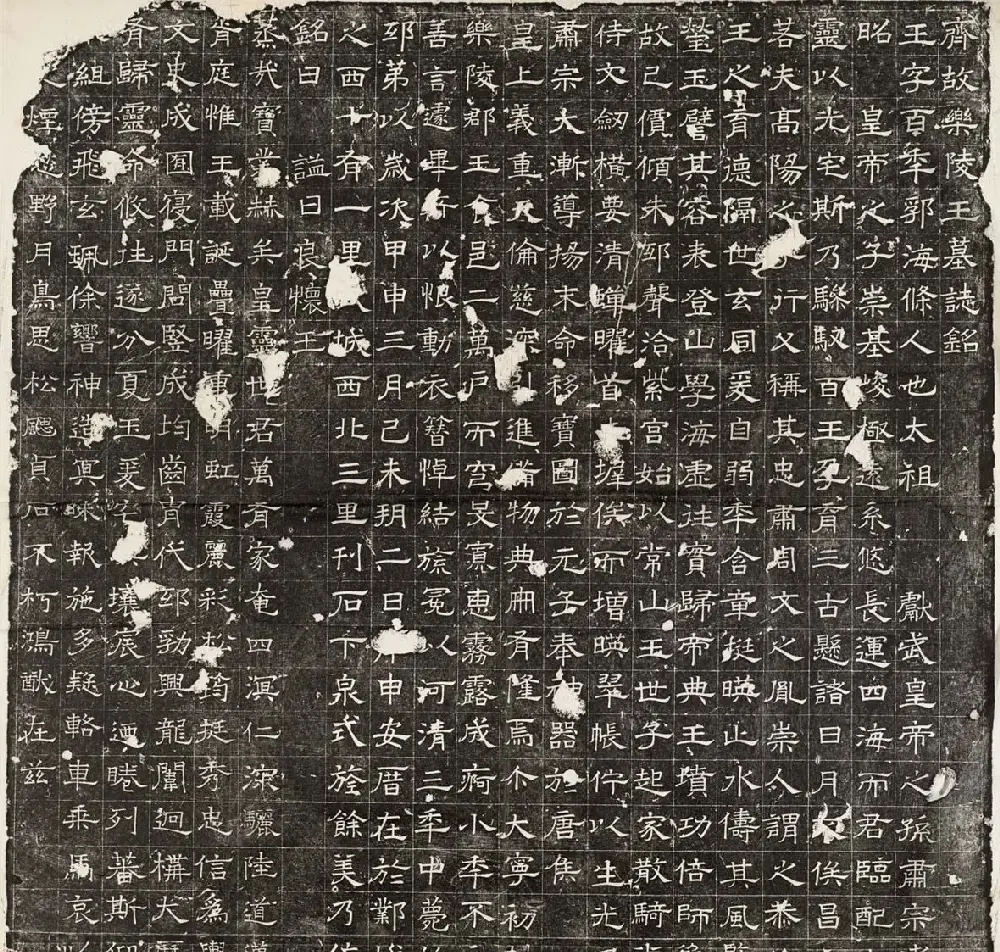 齊故樂陵王墓誌銘
王字百年郭海條人也太祖 獻武皇帝之孫肅宗
昭 皇帝之子崇基峻極遠系悠長運四海而君臨配
靈以光宅斯乃騄馭百王孕育三古懸諸日月俟昌
若夫高陽之行又稱其忠肅周文之胤崇人謂之恭
王之育德隔世玄同爰自弱年含章挺暎止水儔其風
瑩玉譬其容表登山學海虛往實歸帝典王墳功倍師
故已價傾朱邸聲洽紫宮始以常山王世子起家散騎
侍文劒橫要清蟬曜首握俟而增暎翠帳佇以生光
肅宗大漸導揚末命移寶圖於元子奉神器於唐侯
皇上義重天倫慈深引進備物典冊有隆焉尒大寧初
樂陵郡王食邑二萬戶而穹旻寡惠霧露成痾小年不
善言遽畢以恨動衣簪悼結旒冕以河清三年中薨
邸第以歲次甲申三月己未朔二日庚申安厝在於鄴
之西十有一里城西北三里刊石下泉式旌餘美乃
銘曰 謚曰 哀懷王
蒸哉寶業赫矣皇靈世君萬有家奄四溟仁深驪陸道
胥庭惟王載誕疊曜重明虹霞麗彩松筠挺秀忠信爲
文史成囿寢門問豎成均齒胄代邸勃興龍闈迥構犬
有歸靈命攸往遂分夏玉爰壤宸心迺睠列蕃斯
組傍飛玄珮徐響神造冥昧報施多疑輅車乘馬哀以
煙遶野月鳥思松颸貞石不朽鴻猷在茲